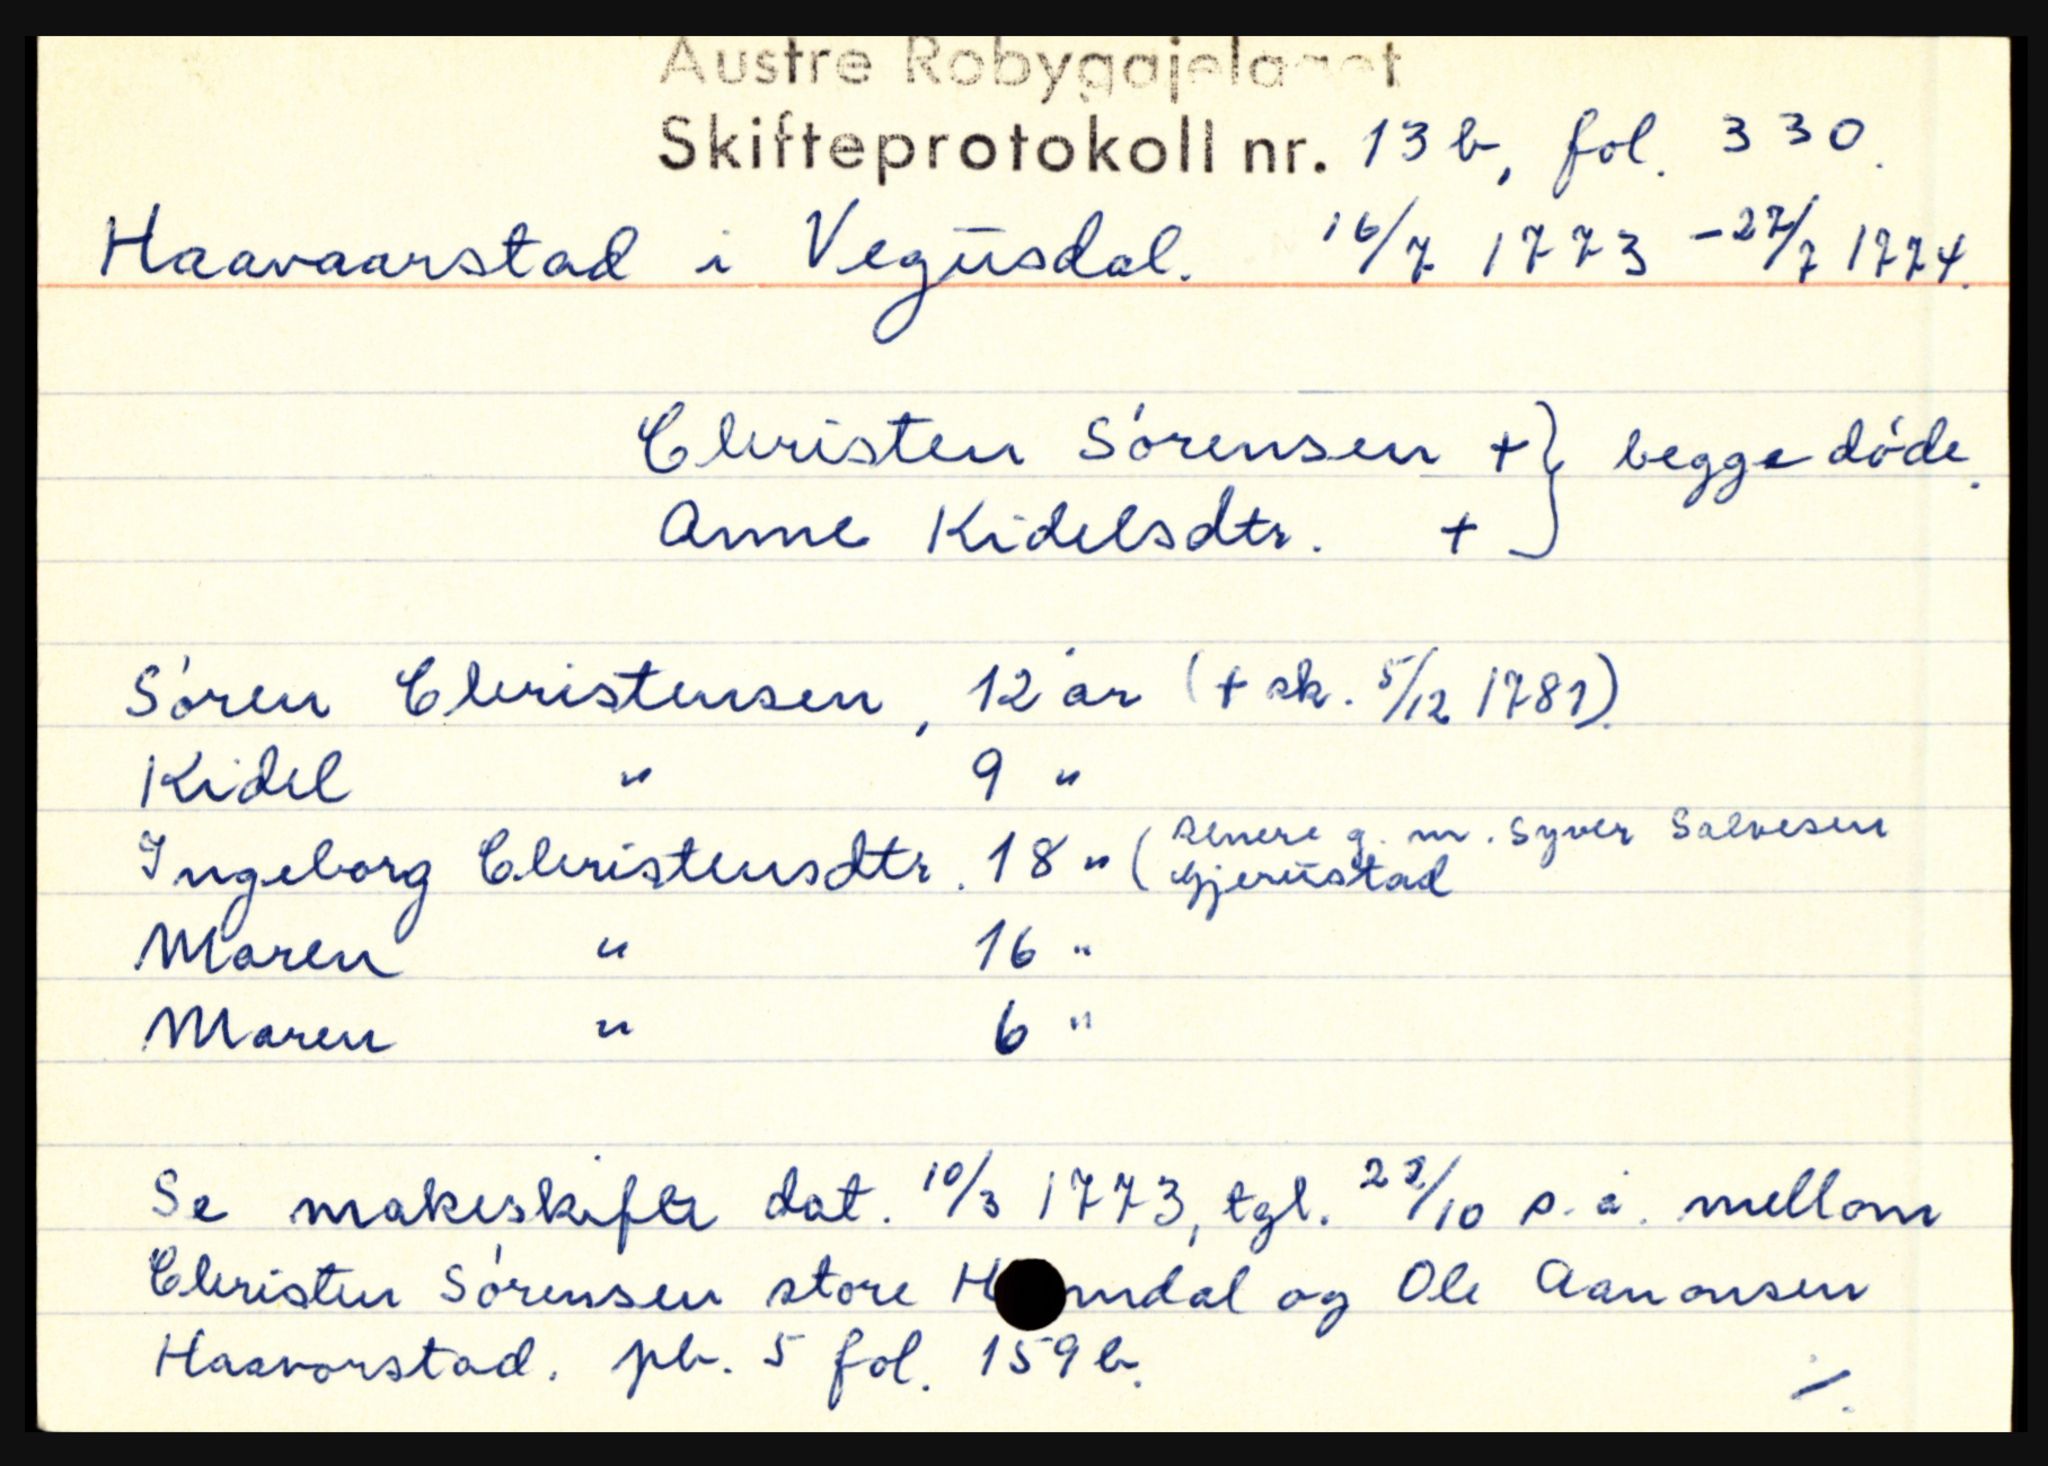 Austre Robygdjelaget
Skifteprotokoll nr. 13b, fol. 330.
Haavaarstad i Vegusdal. 16/7 1773 - 27/7 1774.
Christen Sörensen + } begge döde.
Anne Kidelsdtr. +
Sören Christensen, 12 år (+ sk. 5/12 1781).
Kidel " 9 "
Ingeborg Christensdtr. 18 " ( senere g. m. Syver Salvesen
Gjerustad
Maren " 16 "
Maren " 6 "
Se makeskifte dat. 10/3 1773, tgl. 22/10 s. å. mellom
Christen Sörensen store og Ole Aanonsen
Haavorstad. pb. 5 fol. 159b.